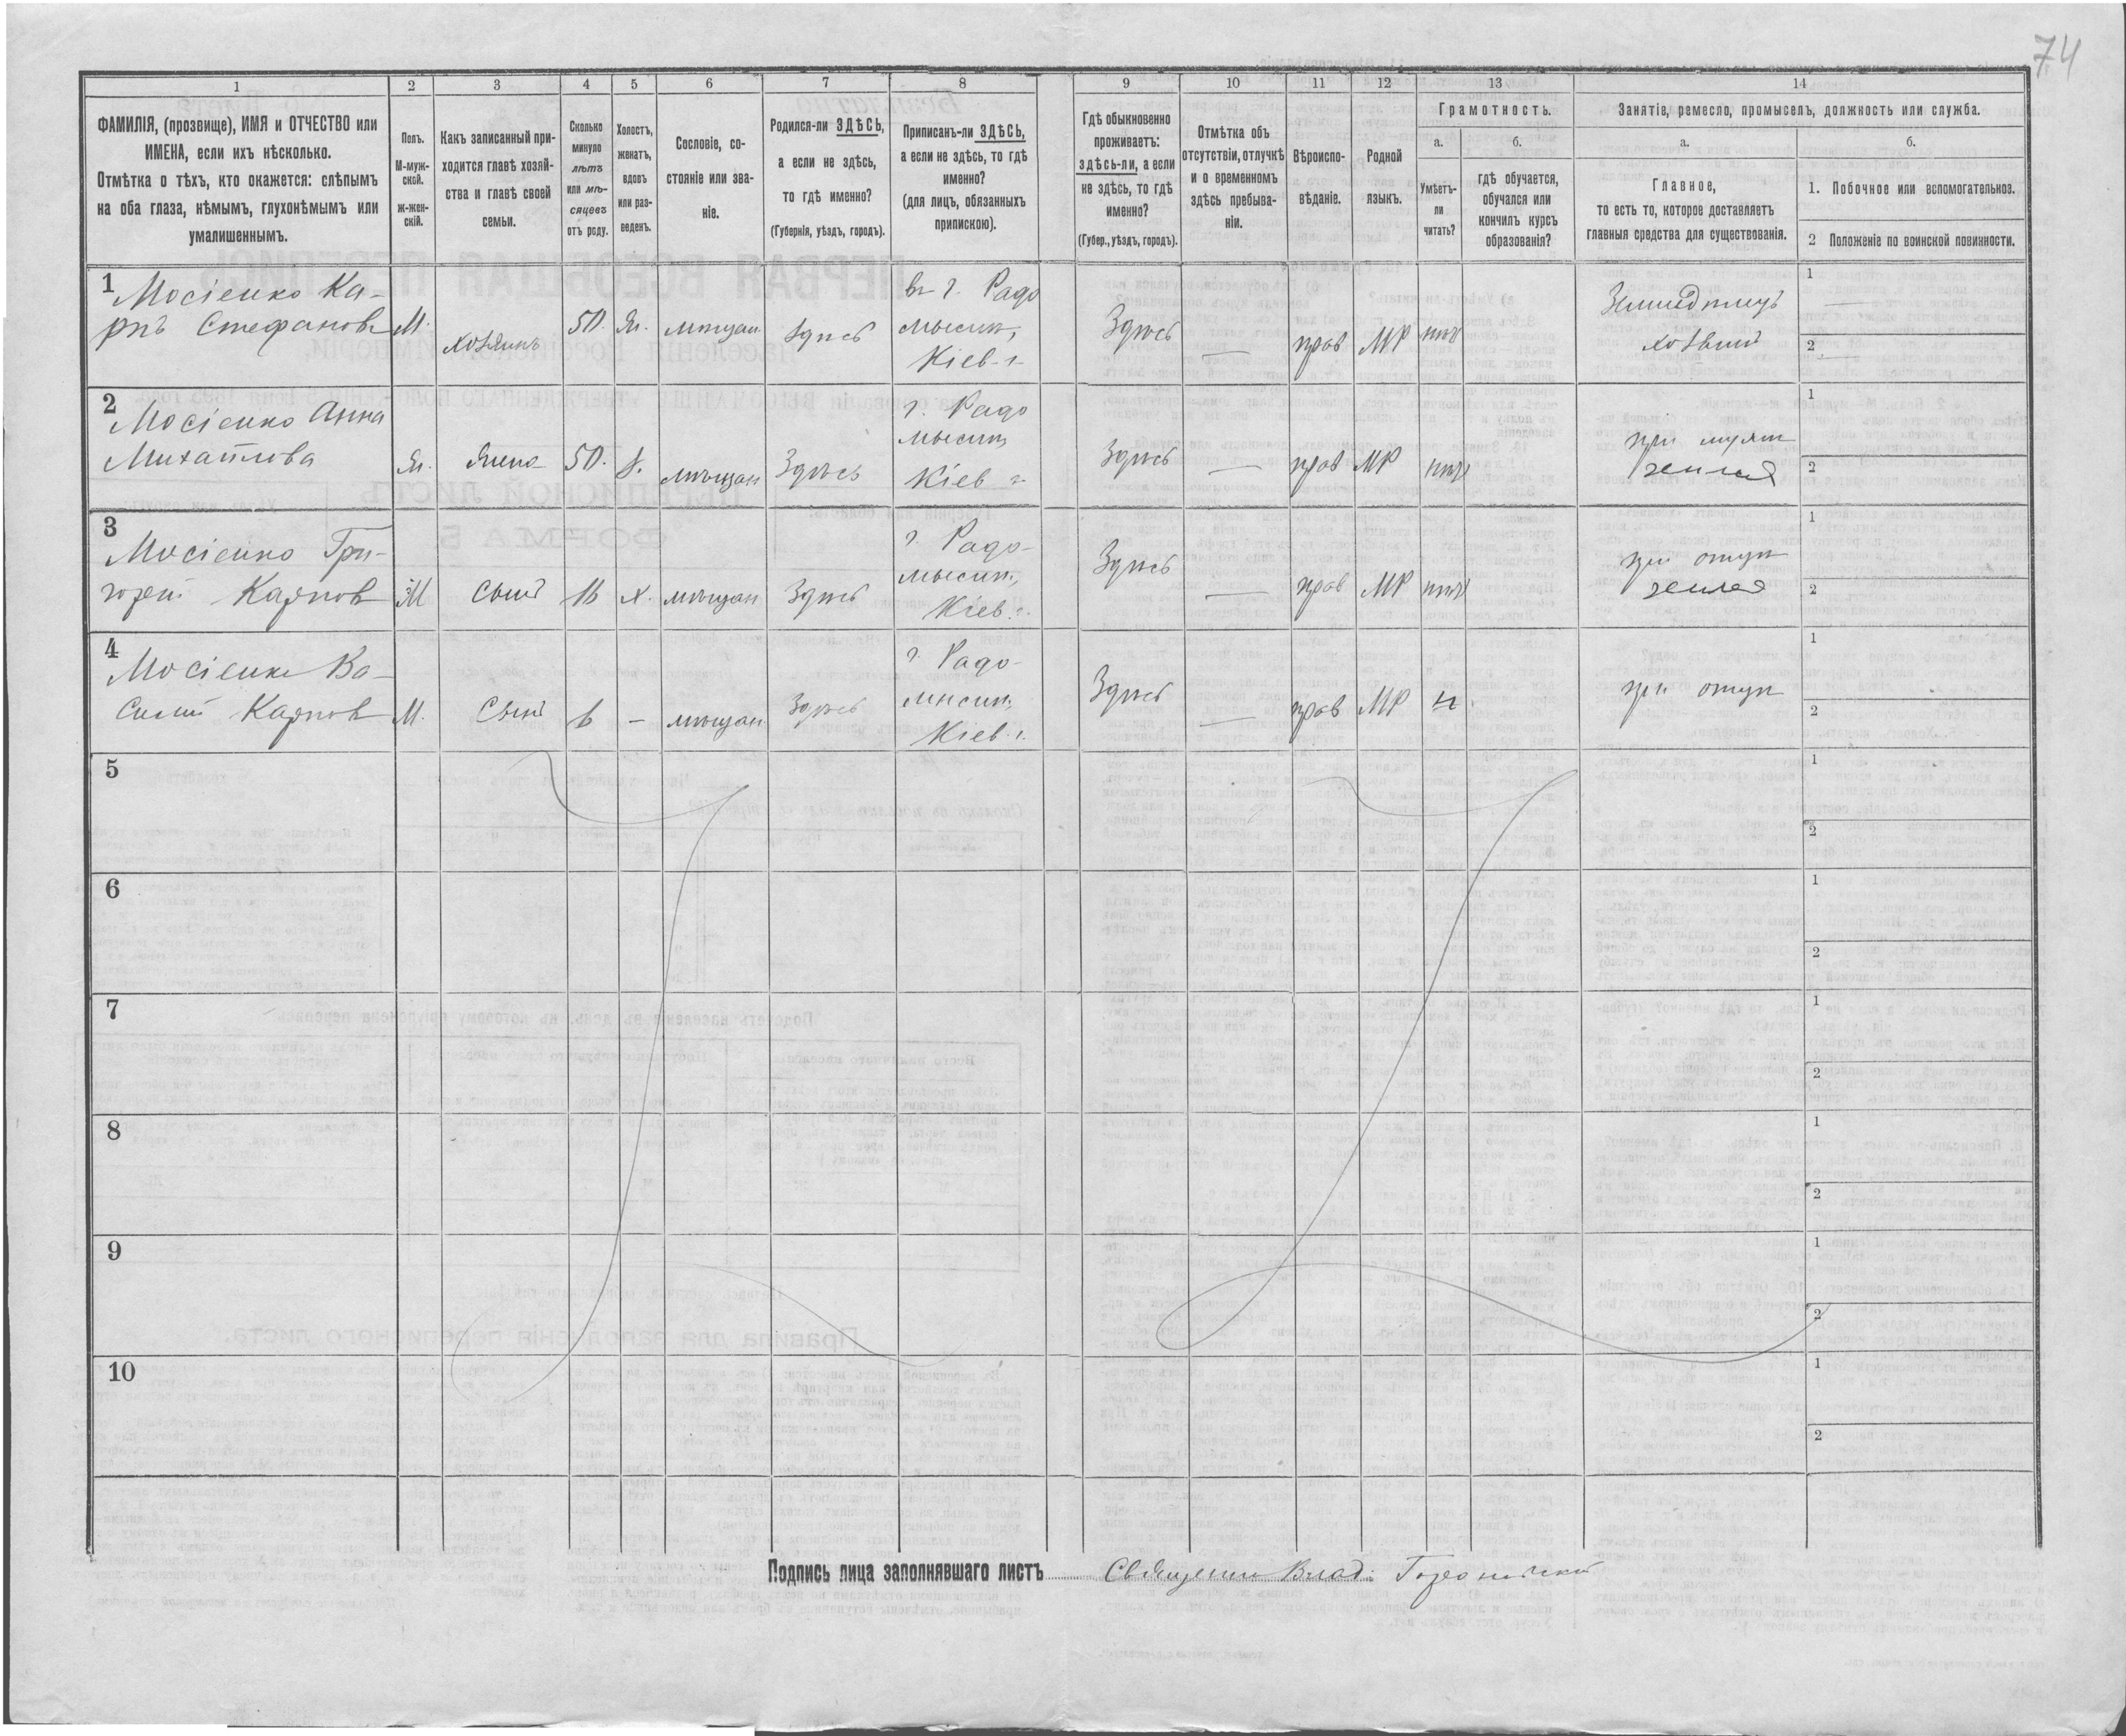 74
1
2
3
4
5
6
7
8
9
10
11
12
13
14
ФАМИЛІЯ, (прозвище), ИМЯ и ОТЧЕСТВО или
ИМЕНА, если ихъ нѣсколько.
Отмѣтка о тѣхъ, кто окажется: слѣпымъ
на оба глаза, нѣмымъ, глухонѣмымъ или
умалишеннымъ.
Полъ.
М-муж-
ской.
ж-жен-
скій.
Какъ записанный при-
ходится главѣ хозяй-
ства и главѣ своей
семьи.
Сколько
минуло
лѣтъ
или мѣ-
сяцевъ
отъ роду.
Холостъ,
женатъ,
вдовъ
или раз-
веденъ.
Сословіе, со-
стояніе или зва-
ніе.
Родился-ли ЗДѢСЬ,
а если не здѣсь,
то гдѣ именно?
(Губернія, уѣздъ, городъ).
Приписанъ-ли ЗДѢСЬ,
а если не здѣсь, то гдѣ
именно?
(для лицъ, обязанныхъ
припискою).
Гдѣ обыкновенно
проживаетъ:
здѣсь-ли, а если
не здѣсь, то гдѣ
именно?
(Губер., уѣздъ, городъ).
Отмѣтка объ
отсутствіи, отлучкѣ
и о временномъ
здѣсь пребыва-
ніи.
Вѣроиспо-
вѣданіе.
Родной
языкъ.
Грамотность.
а.
Умѣетъ-
ли
читать?
б.
гдѣ обучается,
обучался или
кончилъ курсъ
образованія?
Занятіе, ремесло, промыселъ, должность или служба.
а.
Главное,
то есть то, которое доставляетъ
главныя средства для существованія.
б.
1. Побочное или вспомогательное.
2 Положеніе по воинской повинности.
1
Мосіенко Ка-
рпъ Стефановъ
М.
хозяинъ
50.
Ж.
мѣщан
здѣсь
въ г. Радо
мысли,
Кіев. г.
Здѣсь
—
прав
МР
нѣтъ
хозяинъ
1
2
2
Мосіенко Анна
Михайлова
Ж.
жена
50.
з.
мѣщан
Здѣсь
г. Радо
мысли,
Кіев г.
Здѣсь
—
прав
МР
нѣтъ
при мужѣ
земля
1
2
3
Мосіенко Гри-
горій Карпов
М
сынъ
16
х.
мѣщан
Здѣсь
г. Радо-
мысли,
Кіев. г.
Здѣсь
—
прав
МР
нѣтъ
при отцѣ
земля
1
2
4
Мосіенко Ва-
силий Карпов
М.
Сынъ
6
—
мѣщан
Здѣсь
г. Радо-
мысли,
Кіев. г.
Здѣсь
—
прав
МР
н.
при отцѣ
1
2
5
1
2
6
1
2
7
1
2
8
1
2
9
1
2
10
1
2
Подпись лица заполнявшаго листъ Священник Влад.